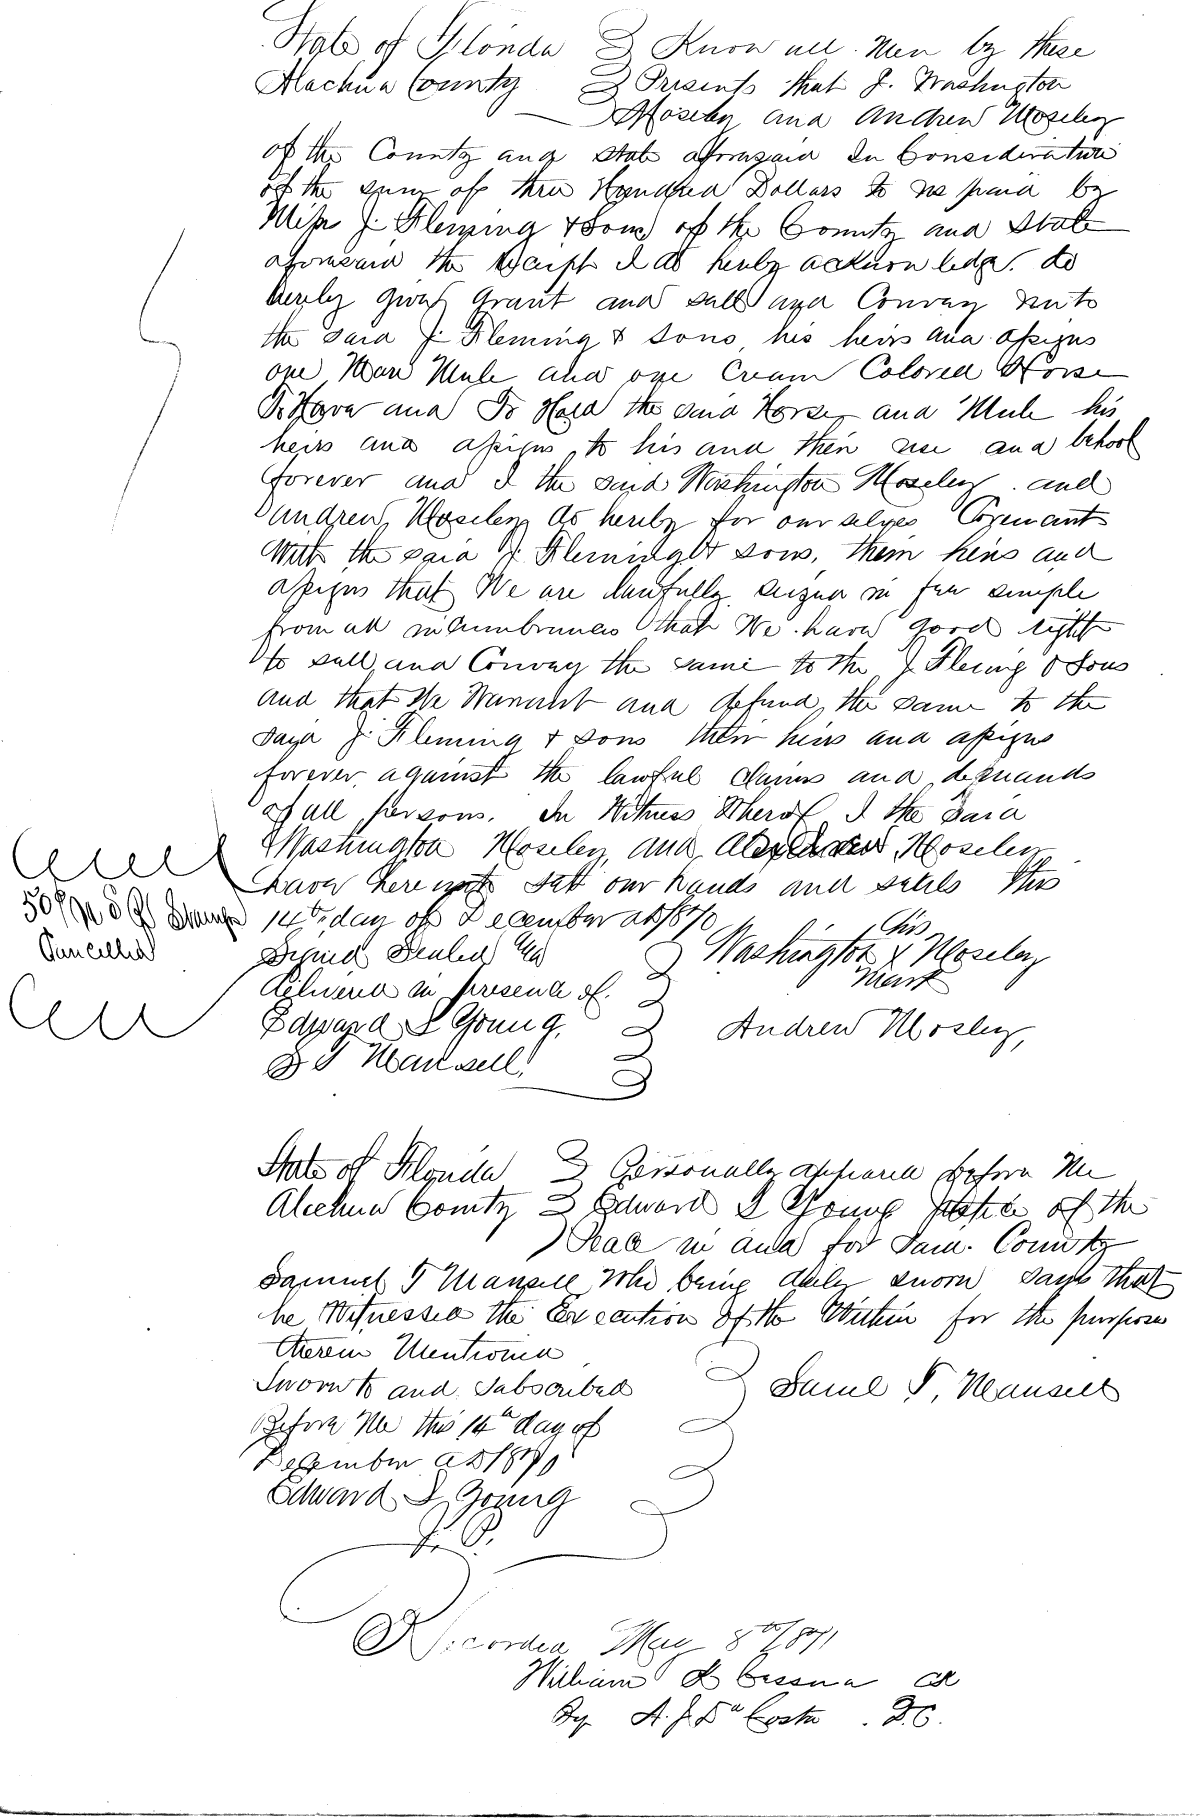 State of Florida Know all Men by these
Alachua County Presents that J. Washington
Moseley and Andrew Moseley
of the County and State aforesaid In Consideration
of the sum of three Hundred Dollars to us paid by
Miss J. Fleming & Sons of the County and State
aforesaid the Receipt I do herby acknowledge. do
herely give Grant and sell and Convay unto
the said J. Fleming & Sons, his heirs and assigns
one Mare Mule and one Cream Colored Horse
To Have and To Hold the said Horse, and Mule his
heirs and assigns to his and their use and behoof
forever and I the said Washington Moseley and
Andrew Moseley do hereby for ourselves Covenant
With the said J. Fleming & sons, them heirs and
assigns that We are lawfully seized in fee simple
from all incumbrances that We have good right
to sell and Convay the same to the J. Fleming & Sons
and that We Warrant and defend, the same to the
said J. Fleming & sons their heirs and assigns
forever, against the lawful claims and demands
of all persons. In Witness Wherof I the said
Washington Moseley, and Moseley
have here unto sett our hands and seals this
50 Stamps 14th, day of December AD 1870
Cancelled
his
Signed Sealed and Washington X Moseley
mark
delivered in presence of.
Edward L Young, Andrew Mosley,
S T Mansell
State of Florida Personally appeared before Me
Alachua County Edward L Young Justice of the
Peace in and for Said. County
Samuel T Mansell Who being duly sworn says that
he Witnessed the Execution of the Within for the purposes
therein Mentioned
Sworn to and Subscribed Saml T, Mansell
Before Me this 14th day of
December AD 1870
Edward L Young
J. P.
Recorded May 8th 1871
William K Cessna Clk
By A. J. DaCosta. D.C.